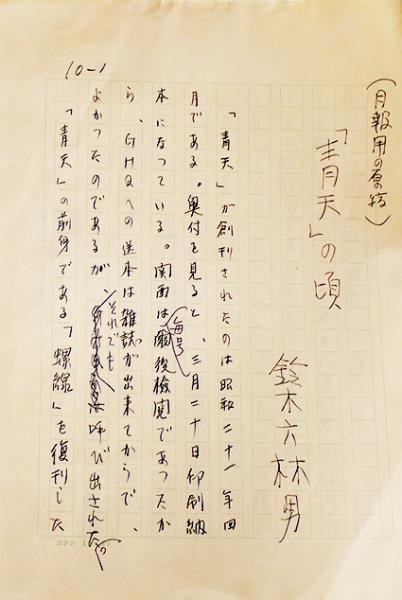 (月報用の原稿)
「青天」の頃
鈴木六林男
10-1
「青天」が創刊されたのは昭和二十一年四
月である。奥付を見ると、三月二十日印刷納
本になっている。関西は毎号後検閲であったか
ら、GHQへの送本は雑誌が出来てからで、
よかったのであるが、それでも呼び出された。
「青天」の前身である「螺線」を復刊した